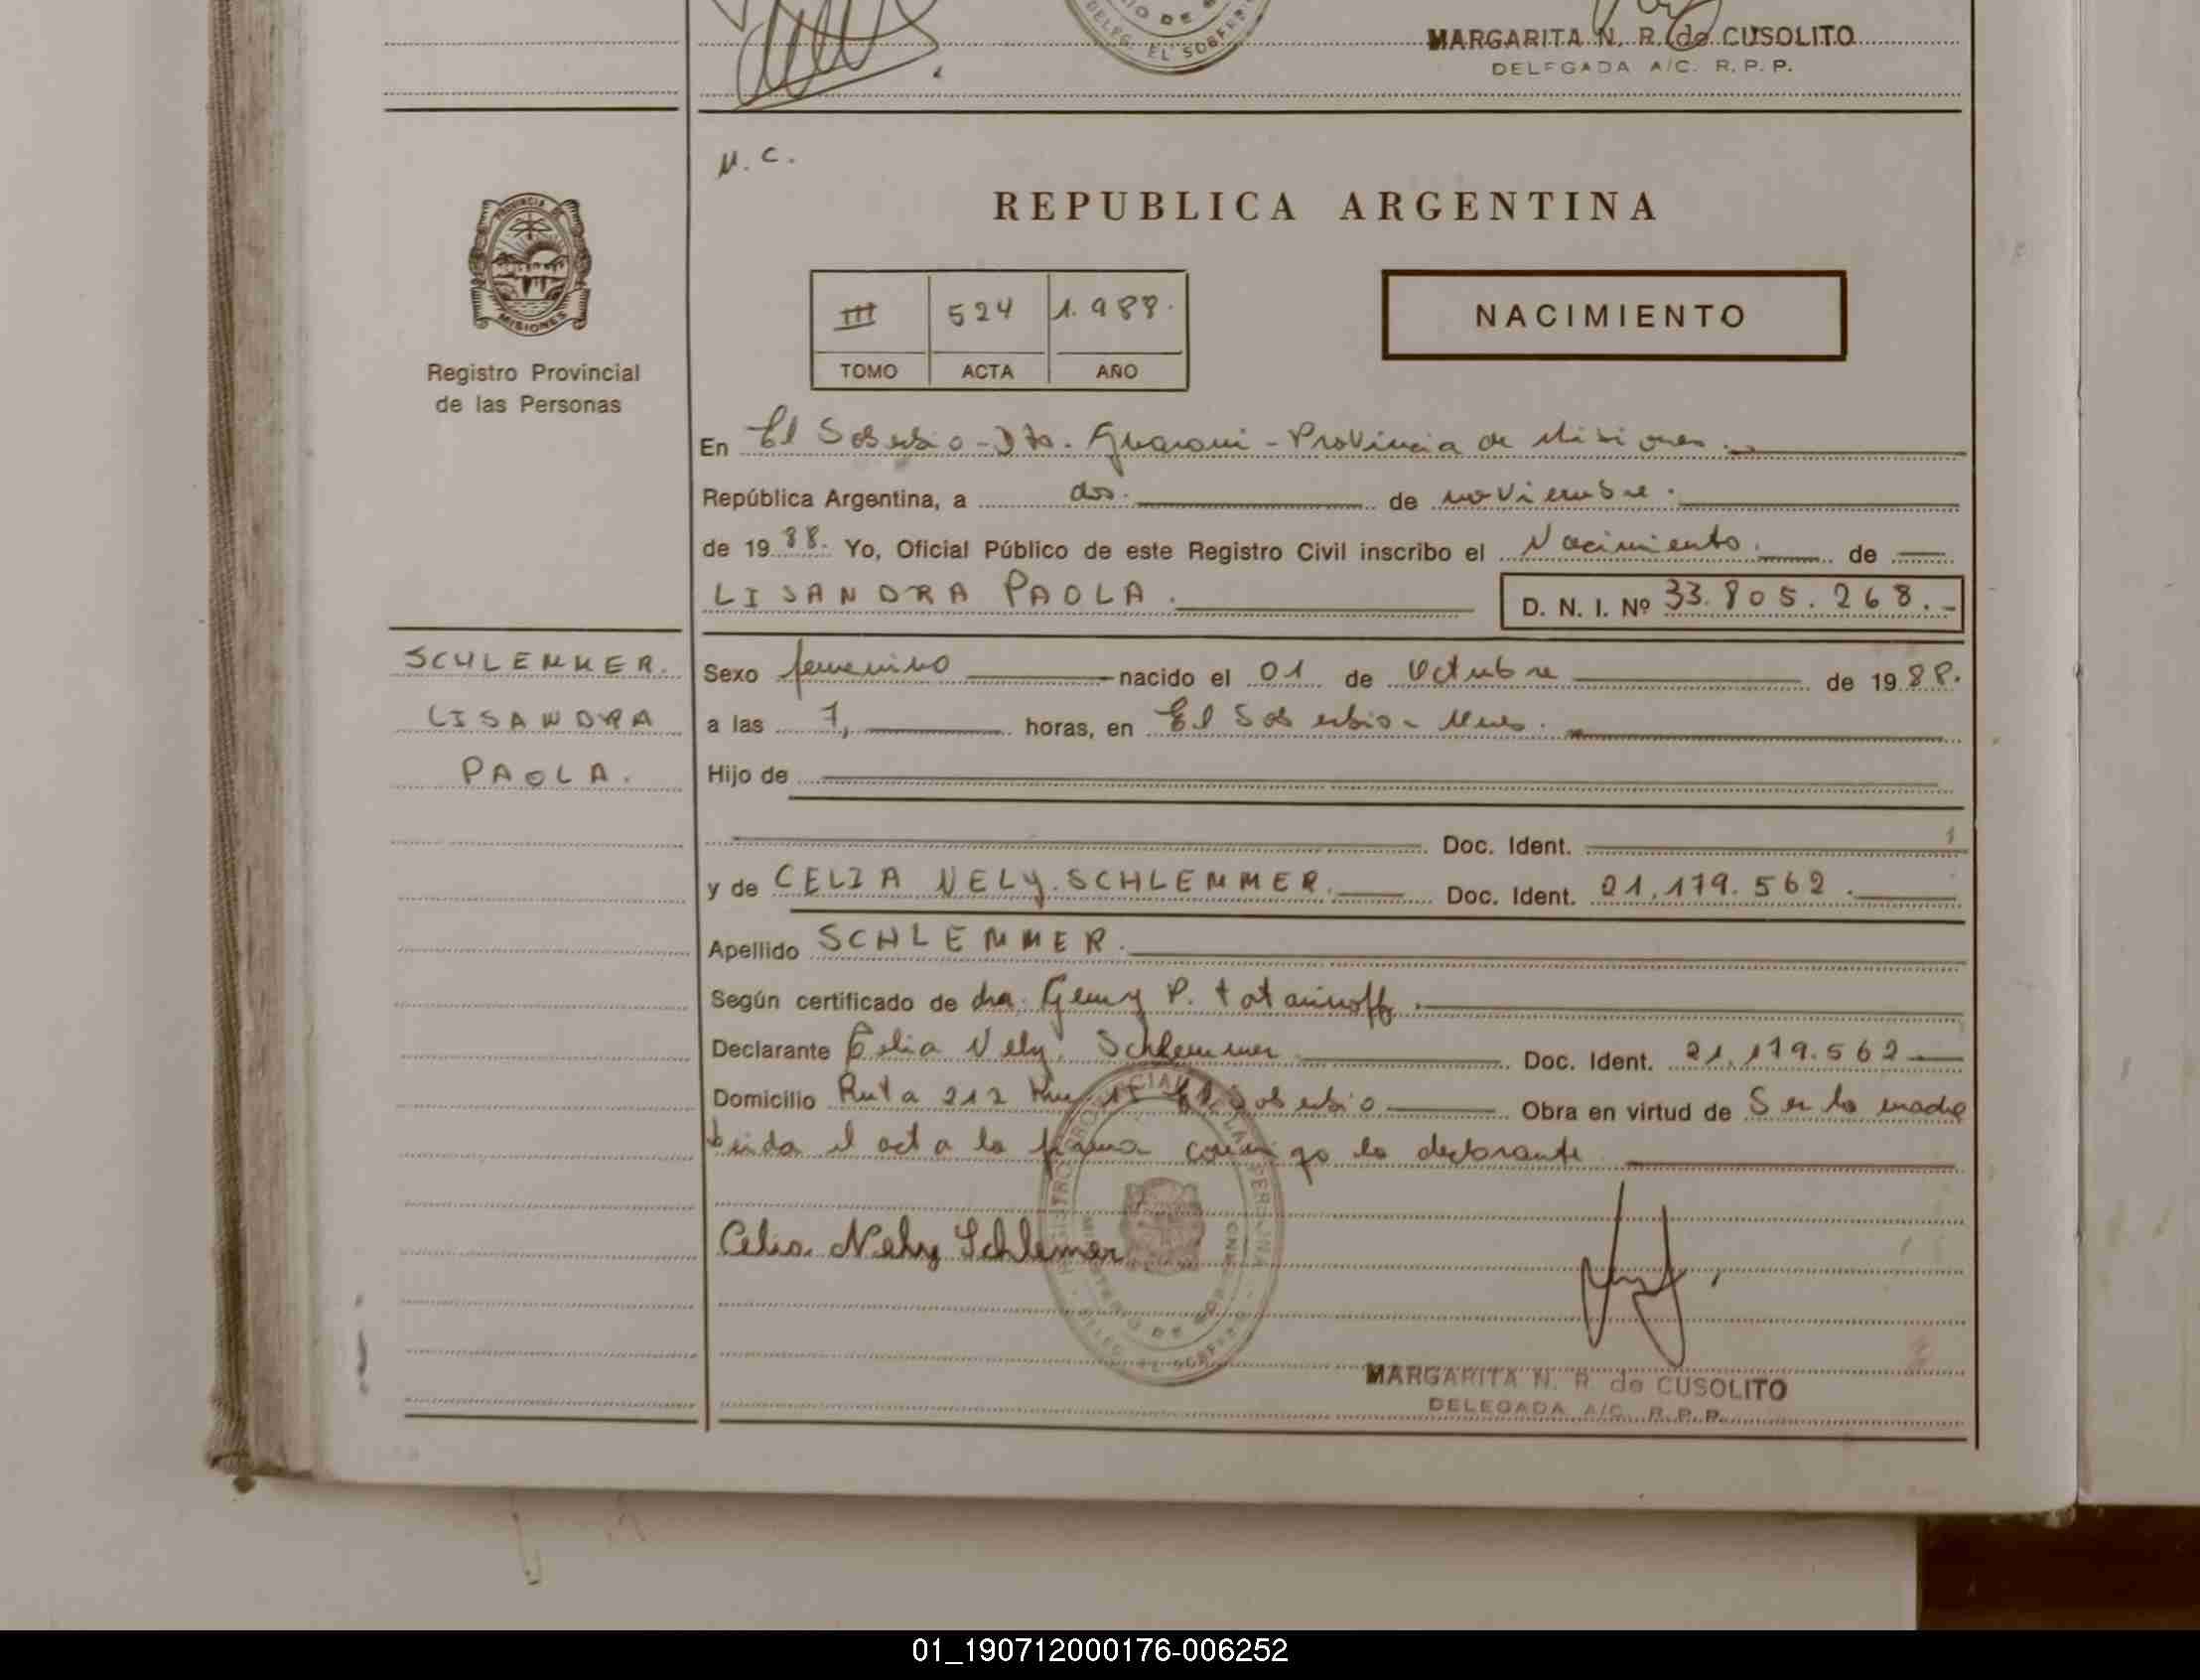 DELEG. EL SOBERBIO
MARGARITA N. R. de CUSOLITO
DELEGADA A/C. R. P. P.
N. C.
PROVINCIA DE
MISIONES
Registro Provincial
de las Personas
REPUBLICA ARGENTINA
III 524 1.988.
TOMO ACTA AÑO
NACIMIENTO
En El Soberbio - Dto. Guarani - Provincia de Misiones.
República Argentina, a dos. de noviembre.
de 1988. Yo, Oficial Público de este Registro Civil inscribo el Nacimiento. de
LISANDRA PAOLA. D. N. I. Nº 33.805.268.-
SCHLEMMER.
LISANDRA
PAOLA.
Sexo femenino nacido el 01 de Octubre de 1988.
a las 7, horas, en El Soberbio - Mnes.
Hijo de
Doc. Ident.
y de CELIA NELY. SCHLEMMER. Doc. Ident. 21.179.562.
Apellido SCHLEMMER.
Según certificado de dra. Geny P. Tatarinoff.
Declarante Celia Nely Schlemmer Doc. Ident. 21.179.562
Domicilio Ruta 212 Km 15 El Soberbio Obra en virtud de Ser la madre
leida el acta la firma conmigo la declarante
Celia Nely Schlemer
MARGARITA N. R. de CUSOLITO
DELEGADA A/C. R. P. P.
01_190712000176-006252